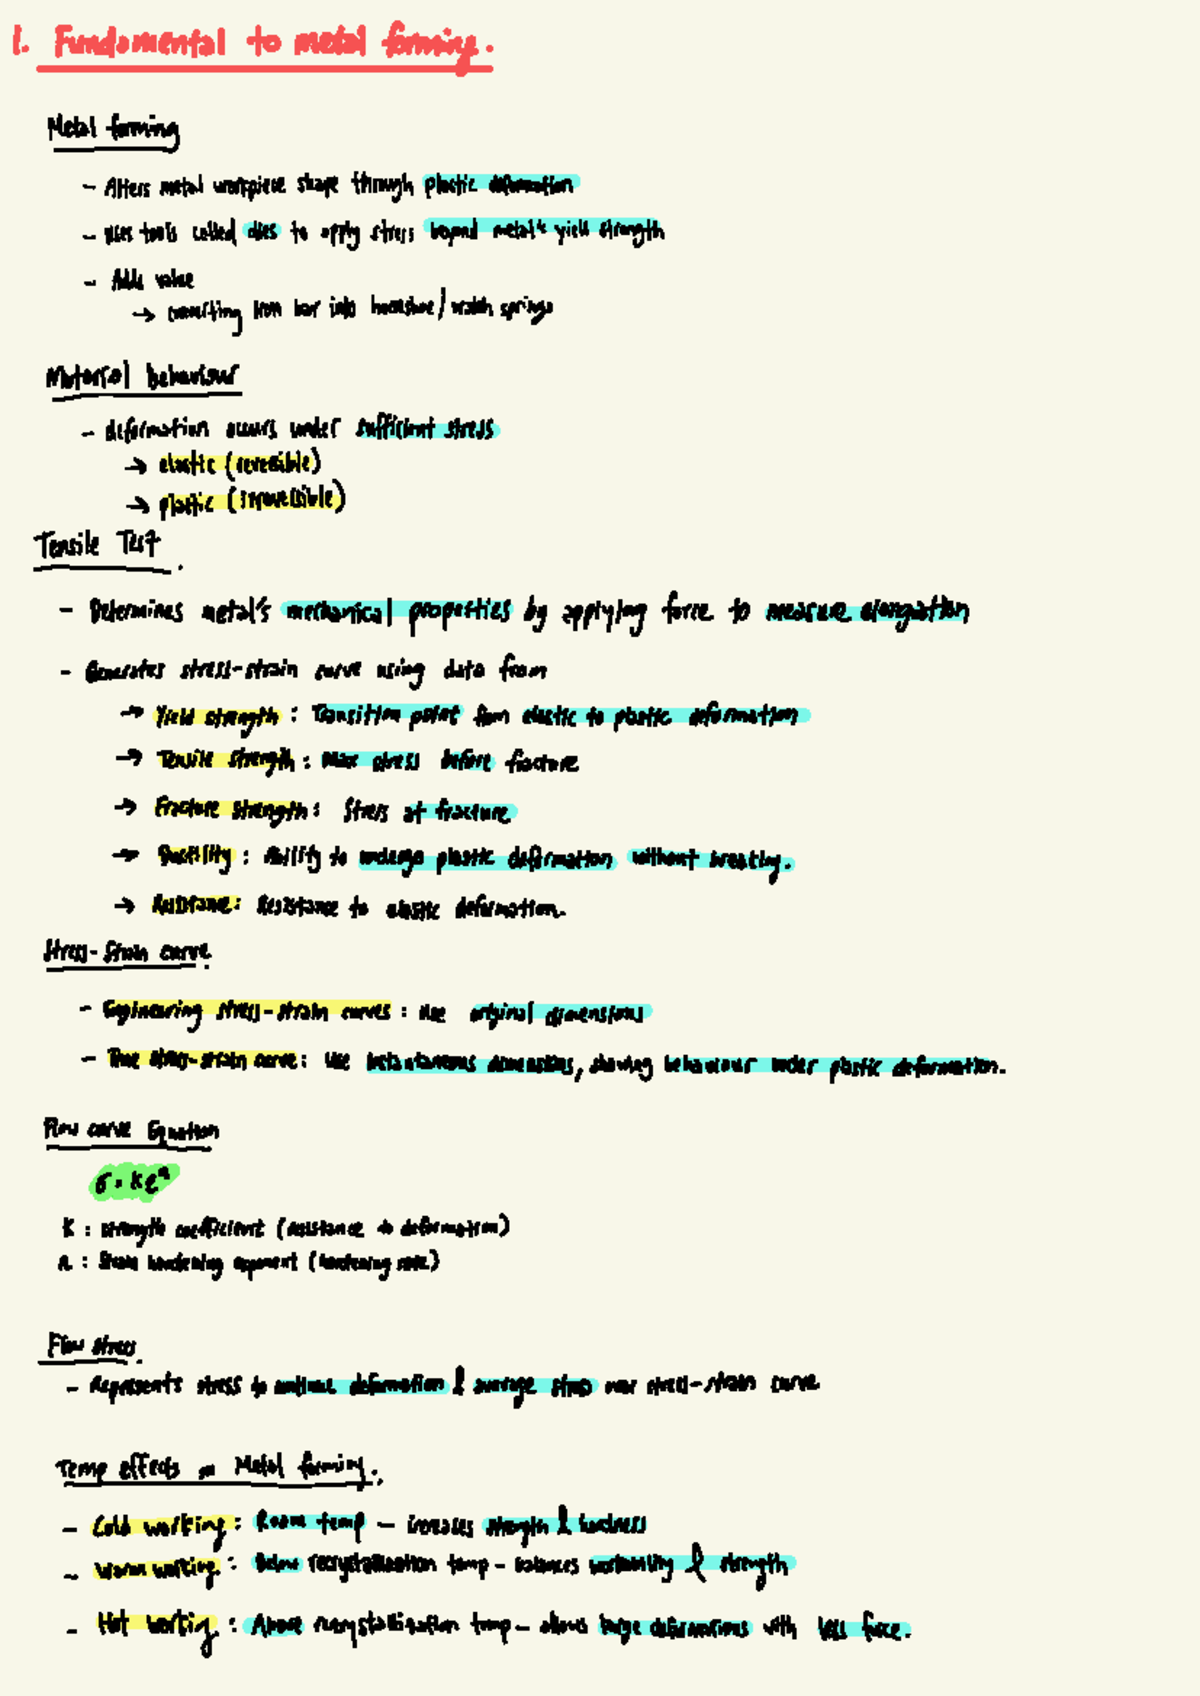 1. Fundamental to metal forming.
Metal forming
- Alters metal workpiece shape through plastic deformation
- Uses tools called dies to apply stress beyond metal's yield strength
- Adds value
→ converting iron bar into horseshoe / watch springs
Material behaviour
- deformation occurs under sufficient stress
→ elastic (reversible)
→ plastic (irreversible)
Tensile Test.
- Determines metal's mechanical properties by applying force to measure elongation
- Generates stress-strain curve using data from
→ Yield strength : Transition point from elastic to plastic deformation
→ Tensile strength : Max stress before fracture
→ Fracture strength : Stress at fracture
→ Ductility : Ability to undergo plastic deformation without breaking.
→ Resistance : Resistance to elastic deformation.
Stress-Strain curve.
- Engineering stress-strain curves : use original dimensions
- True stress-strain curve : Use instantaneous dimensions, showing behaviour under plastic deformation.
Flow curve Equation
σ = Kεⁿ
K : strength coefficient (resistance to deformation)
n : Strain hardening exponent (hardening rate)
Flow stress.
- Represents stress to continue deformation & average stress over stress-strain curve
Temp effects on Metal forming.
- Cold working : Room temp - increases strength & hardness
- Warm working : Below recrystallisation temp - balances workability & strength
- Hot working : Above recrystallization temp - allows large deformations with less force.